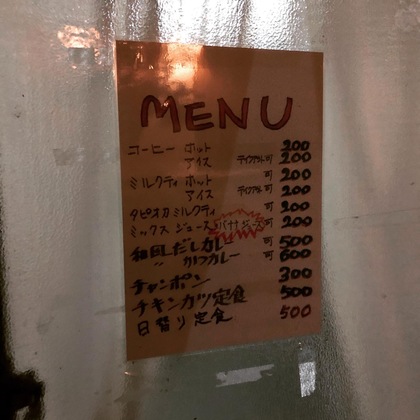 MENU
コーヒー ホット 200
アイス テイクアウト可 200
ミルクティ ホット 可 200
アイス テイクアウト可 200
タピオカミルクティ 可 200
ミックスジュース バナナジュース 可 200
和風だしカレー 可 500
〃 かつカレー 可 600
チャンポン 300
チキンカツ定食 500
日替り定食 500